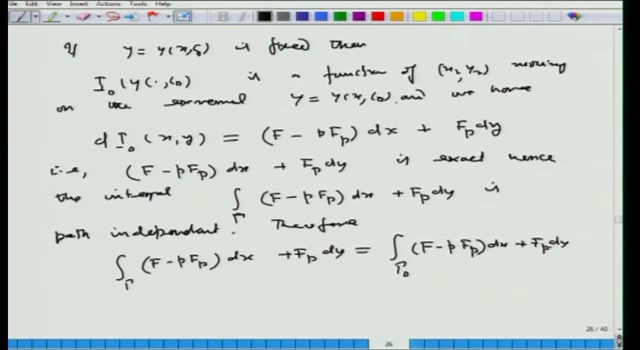 File Edit View Insert Actions Tools Help
If y = y(x, c) is fixed then
I₀(y(·, c₀) is a function of (x₂, y₂) moving
on the extremal y = y(x, c₀) and we have
d I₀(x, y) = (F − pFₚ) dx + Fₚ dy
i.e., (F − pFₚ) dx + Fₚ dy is exact hence
the integral ∫_Γ (F − pFₚ) dx + Fₚ dy is
path independant. Therefore
∫_Γ (F − pFₚ) dx + Fₚ dy = ∫_Γ₀ (F − pFₚ) dx + Fₚ dy
26